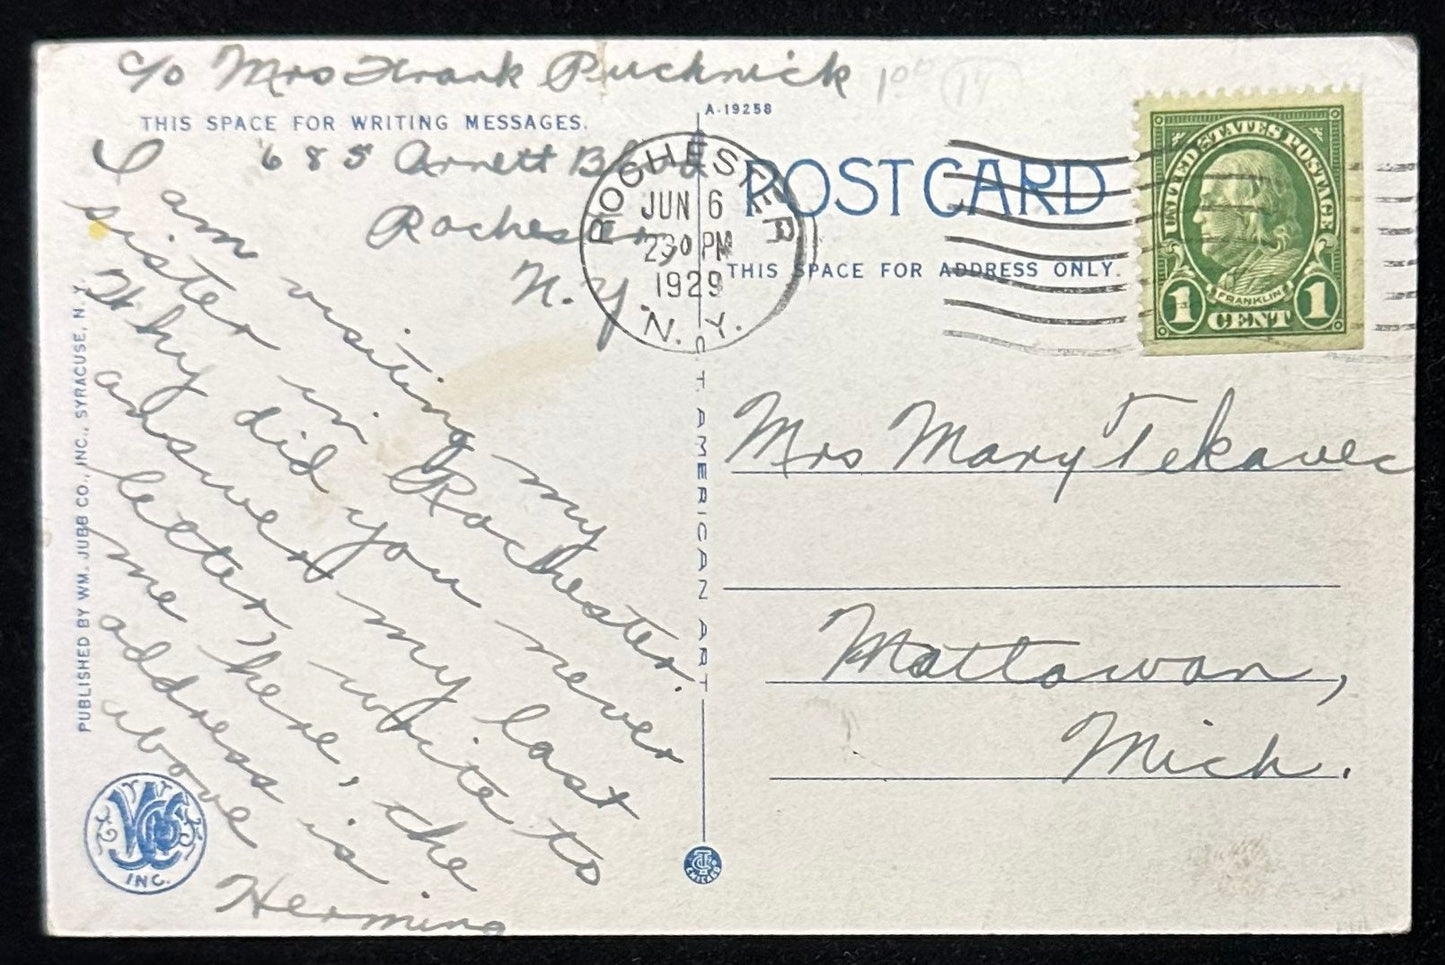 c/o Mrs Frank Puchnick
1⁰⁰
THIS SPACE FOR WRITING MESSAGES.
A-19258
685 Arnett Blvd
Rochester
N.Y.
I am visiting my
sister in Rochester.
Why did you never
answer my last
letter? write to
me here, the
address is
above
Hermina
PUBLISHED BY WM. JUBB CO., INC., SYRACUSE, N. Y.
INC.
C.T. AMERICAN ART
CHICAGO
ROCHESTER
JUN 6
230 PM
1929
N. Y.
POST CARD
THIS SPACE FOR ADDRESS ONLY.
UNITED STATES POSTAGE
FRANKLIN
1 CENT 1
Mrs Mary Tekavec
Mattawan,
Mich.